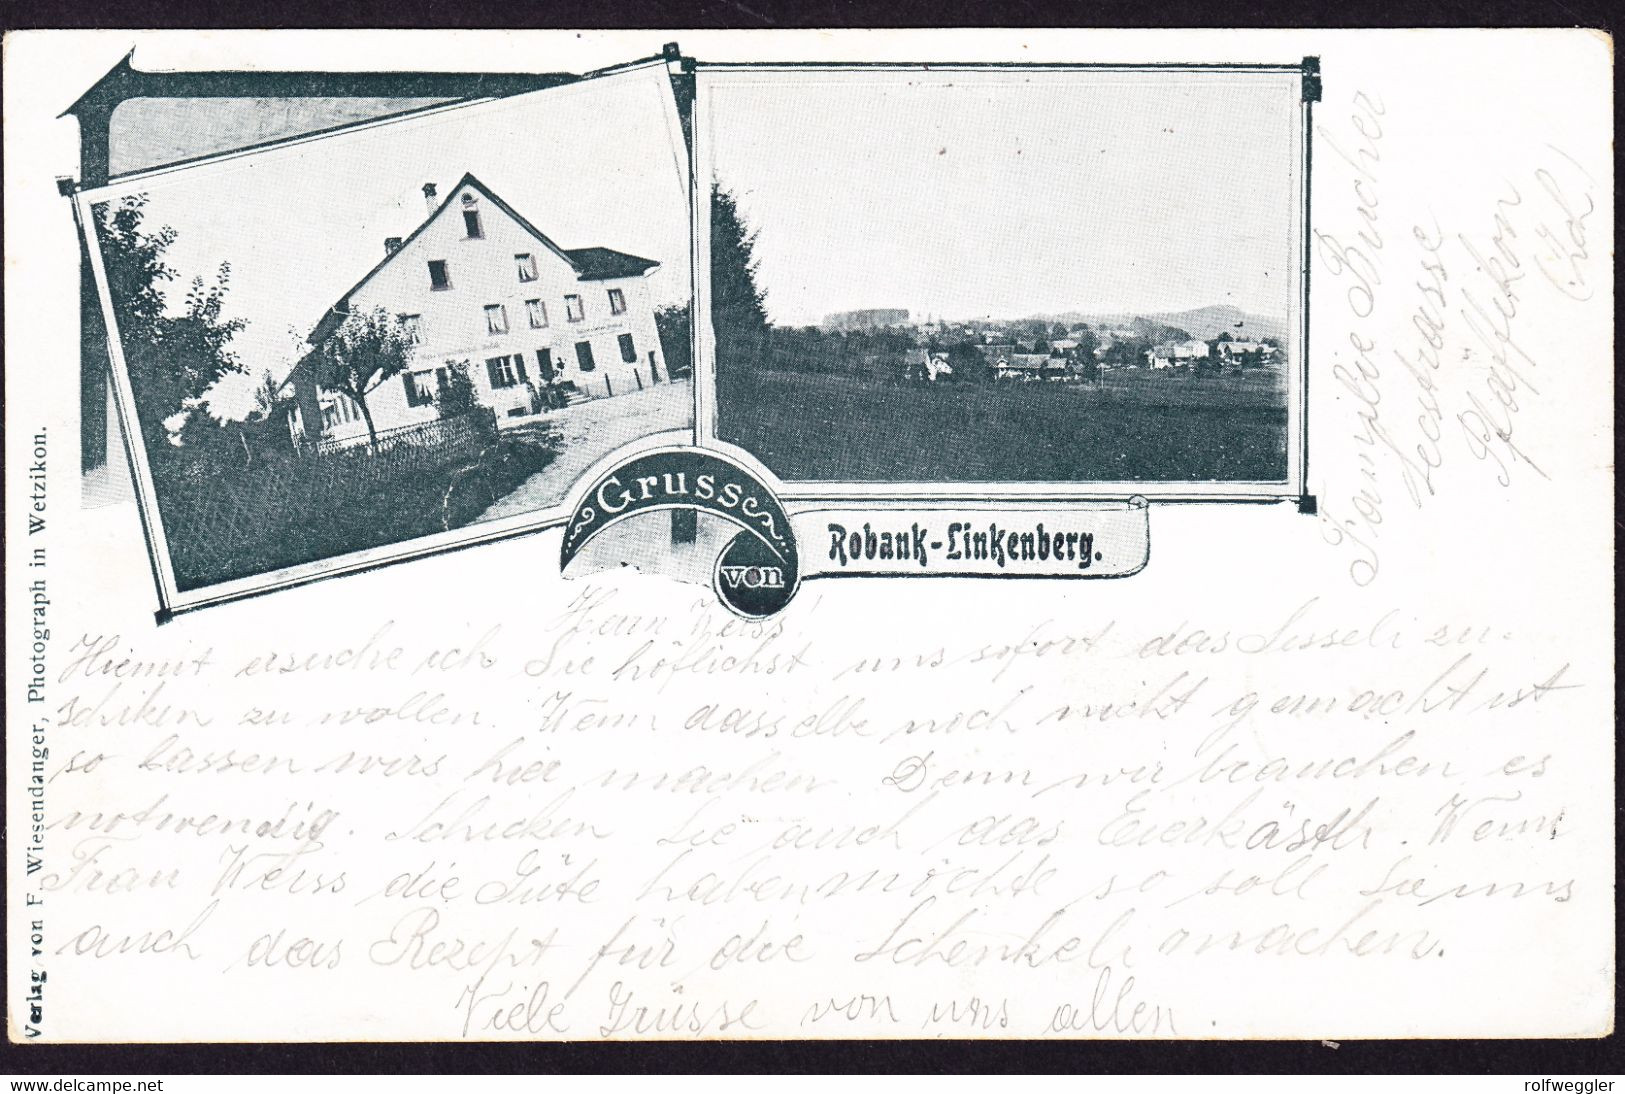 Gruss
von
Robank-Linkenberg.
Herrn Weiss!
Hiemit ersuche ich Sie höflichst uns sofort das Sesseli zu-
schiken zu wollen. Wenn dasselbe noch nicht gemacht ist
so lassen wirs hier machen. Denn wir brauchen es
notwendig. Schicken Sie auch das Eierkästli. Wenn
Frau Weiss die Güte haben möchte so soll Sie uns
auch das Rezept für die Schenkeli machen.
Viele Grüsse von uns allen.
Familie Bucher
Seestrasse
Pfäffikon
(Zürich)
Verlag von F. Wiesendanger, Photograph in Wetzikon.
www.delcampe.net
rolfweggler